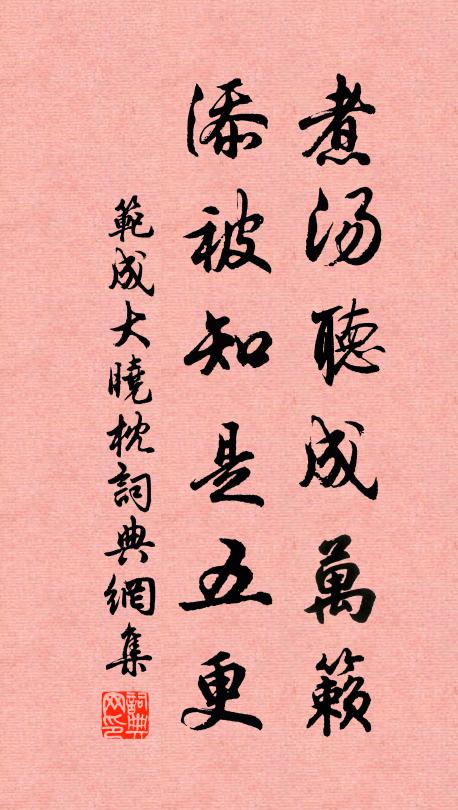 煮湯聽成萬籟
添被知是五更
範成大曉枕詞典網集
詞典
网印